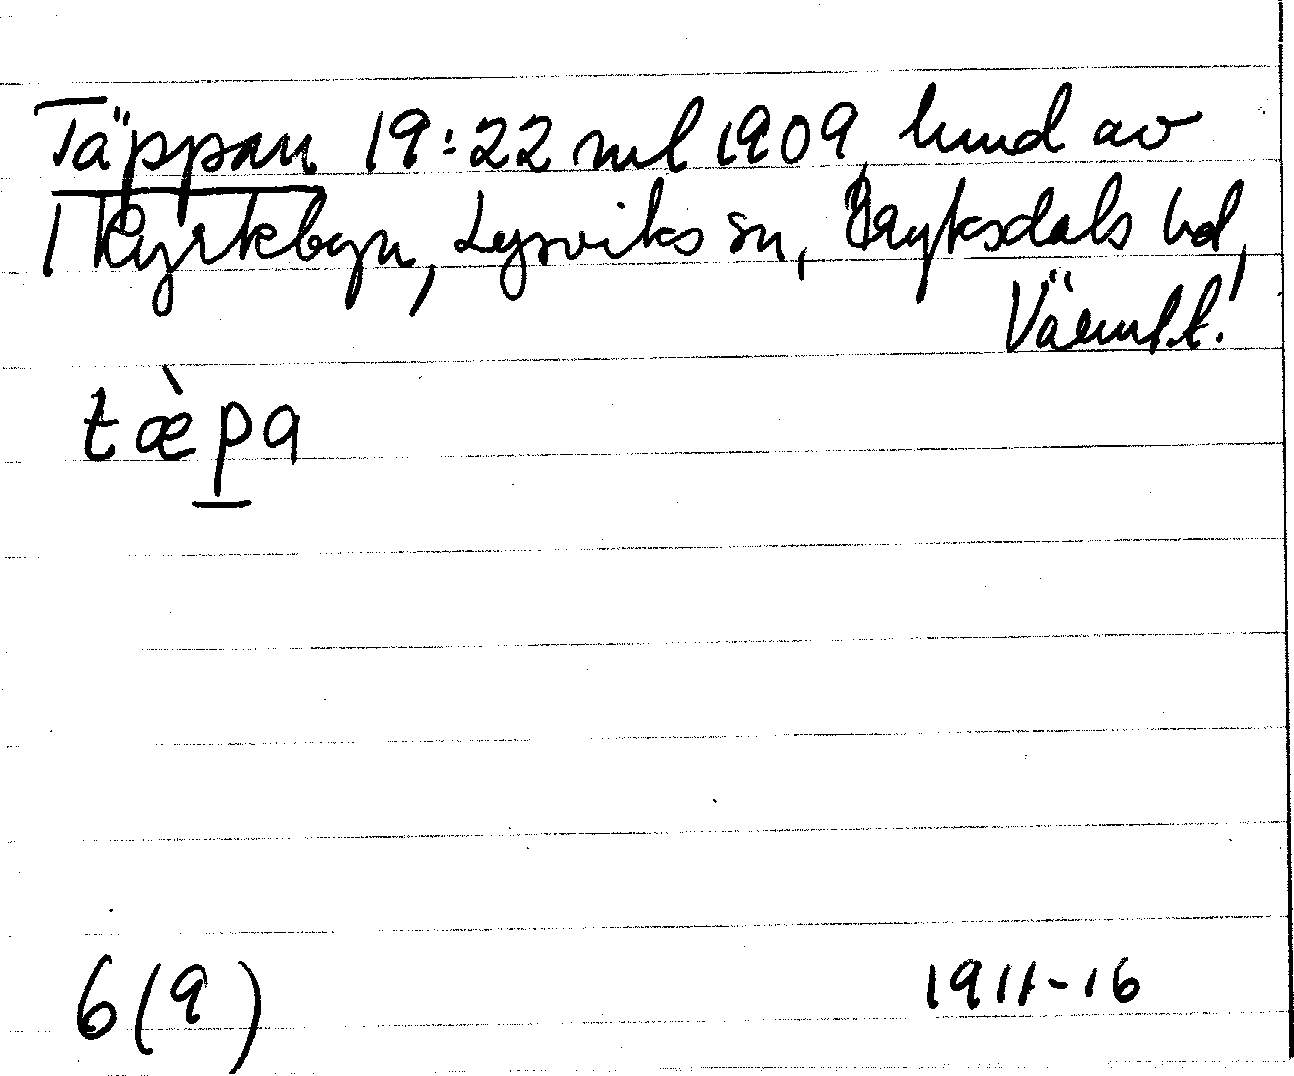 Täppan 19:22 ml 1909, hmd av
1 Kyrkbyn, Lysviks sn, Fryksdals hd,
Värml.l.
tæ̀pa
6(9)
1911-16